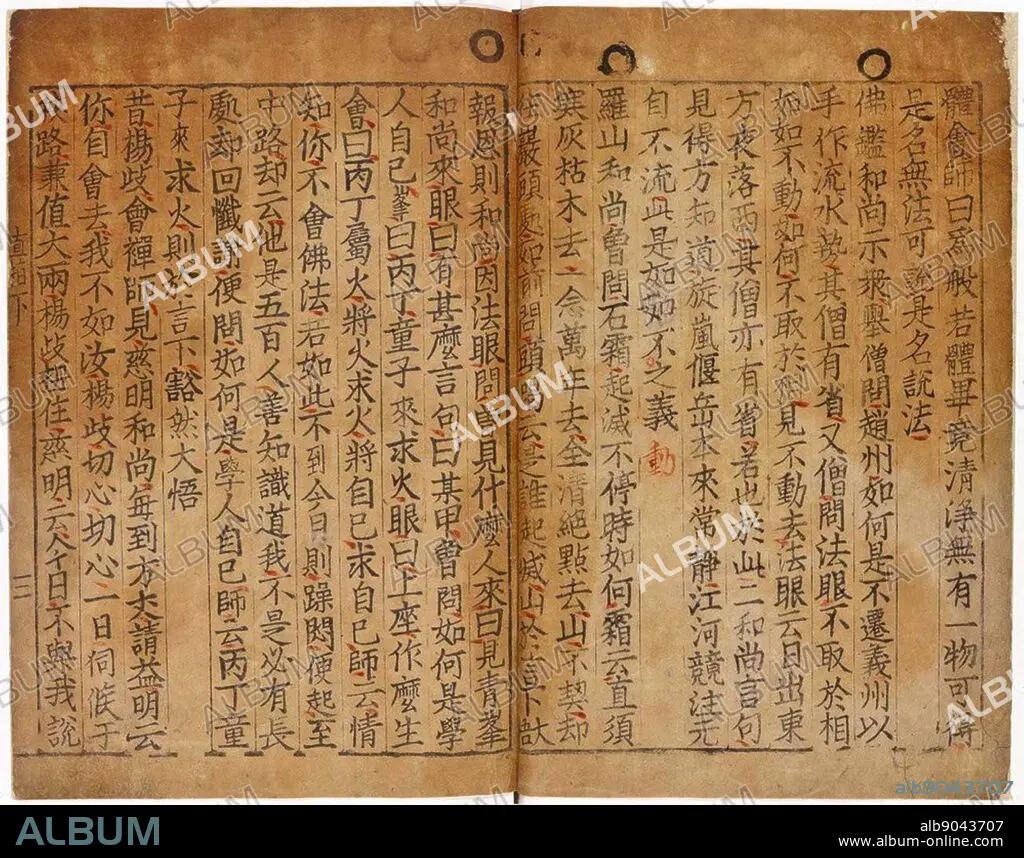 體會師曰爲般若體畢竟清淨無有一物可得
是名無法可說是名說法
佛鑑和尚示衆擧僧問趙州如何是不遷義州以
手作流水勢其僧有省又僧問法眼不取於相
如如不動如何不取於相見不動去法眼云日出東
方夜落西其僧亦有省若也於此二和尚言句
見得方知道旋嵐偃岳本來常靜江河競注元
自不流此是如如不之義
動
羅山和尚曾問石霜起滅不停時如何霜云直須
寒灰枯木去一念萬年去全清絕點去山不契却
巖頭處如前問頭云是誰起滅山於言下
報恩則和尚因法眼問曾見什麼人來曰見青峯
和尚來眼曰有甚麼言句曰某甲曾問如何是學
人自己峯曰丙丁童子來求火眼曰上座作麼生
會曰丙丁屬火將火求火將自己求自己師云情
知你不會佛法若如此不到今日則躁悶便起至
中路却云他是五百人善知識道我不是必有長
處却回懺謝便問如何是學人自己師云丙丁童
子來求火則於言下豁然大悟
昔楊歧會禪師見慈明和尚每到方丈請益明云
你自會去我不如汝楊歧切心切心一日伺候于
路兼值大雨楊歧扭住慈明云今日不與我說
直指下
三
ALBUM
alb9043707
ALBUM
alb9043707
www.album-online.com